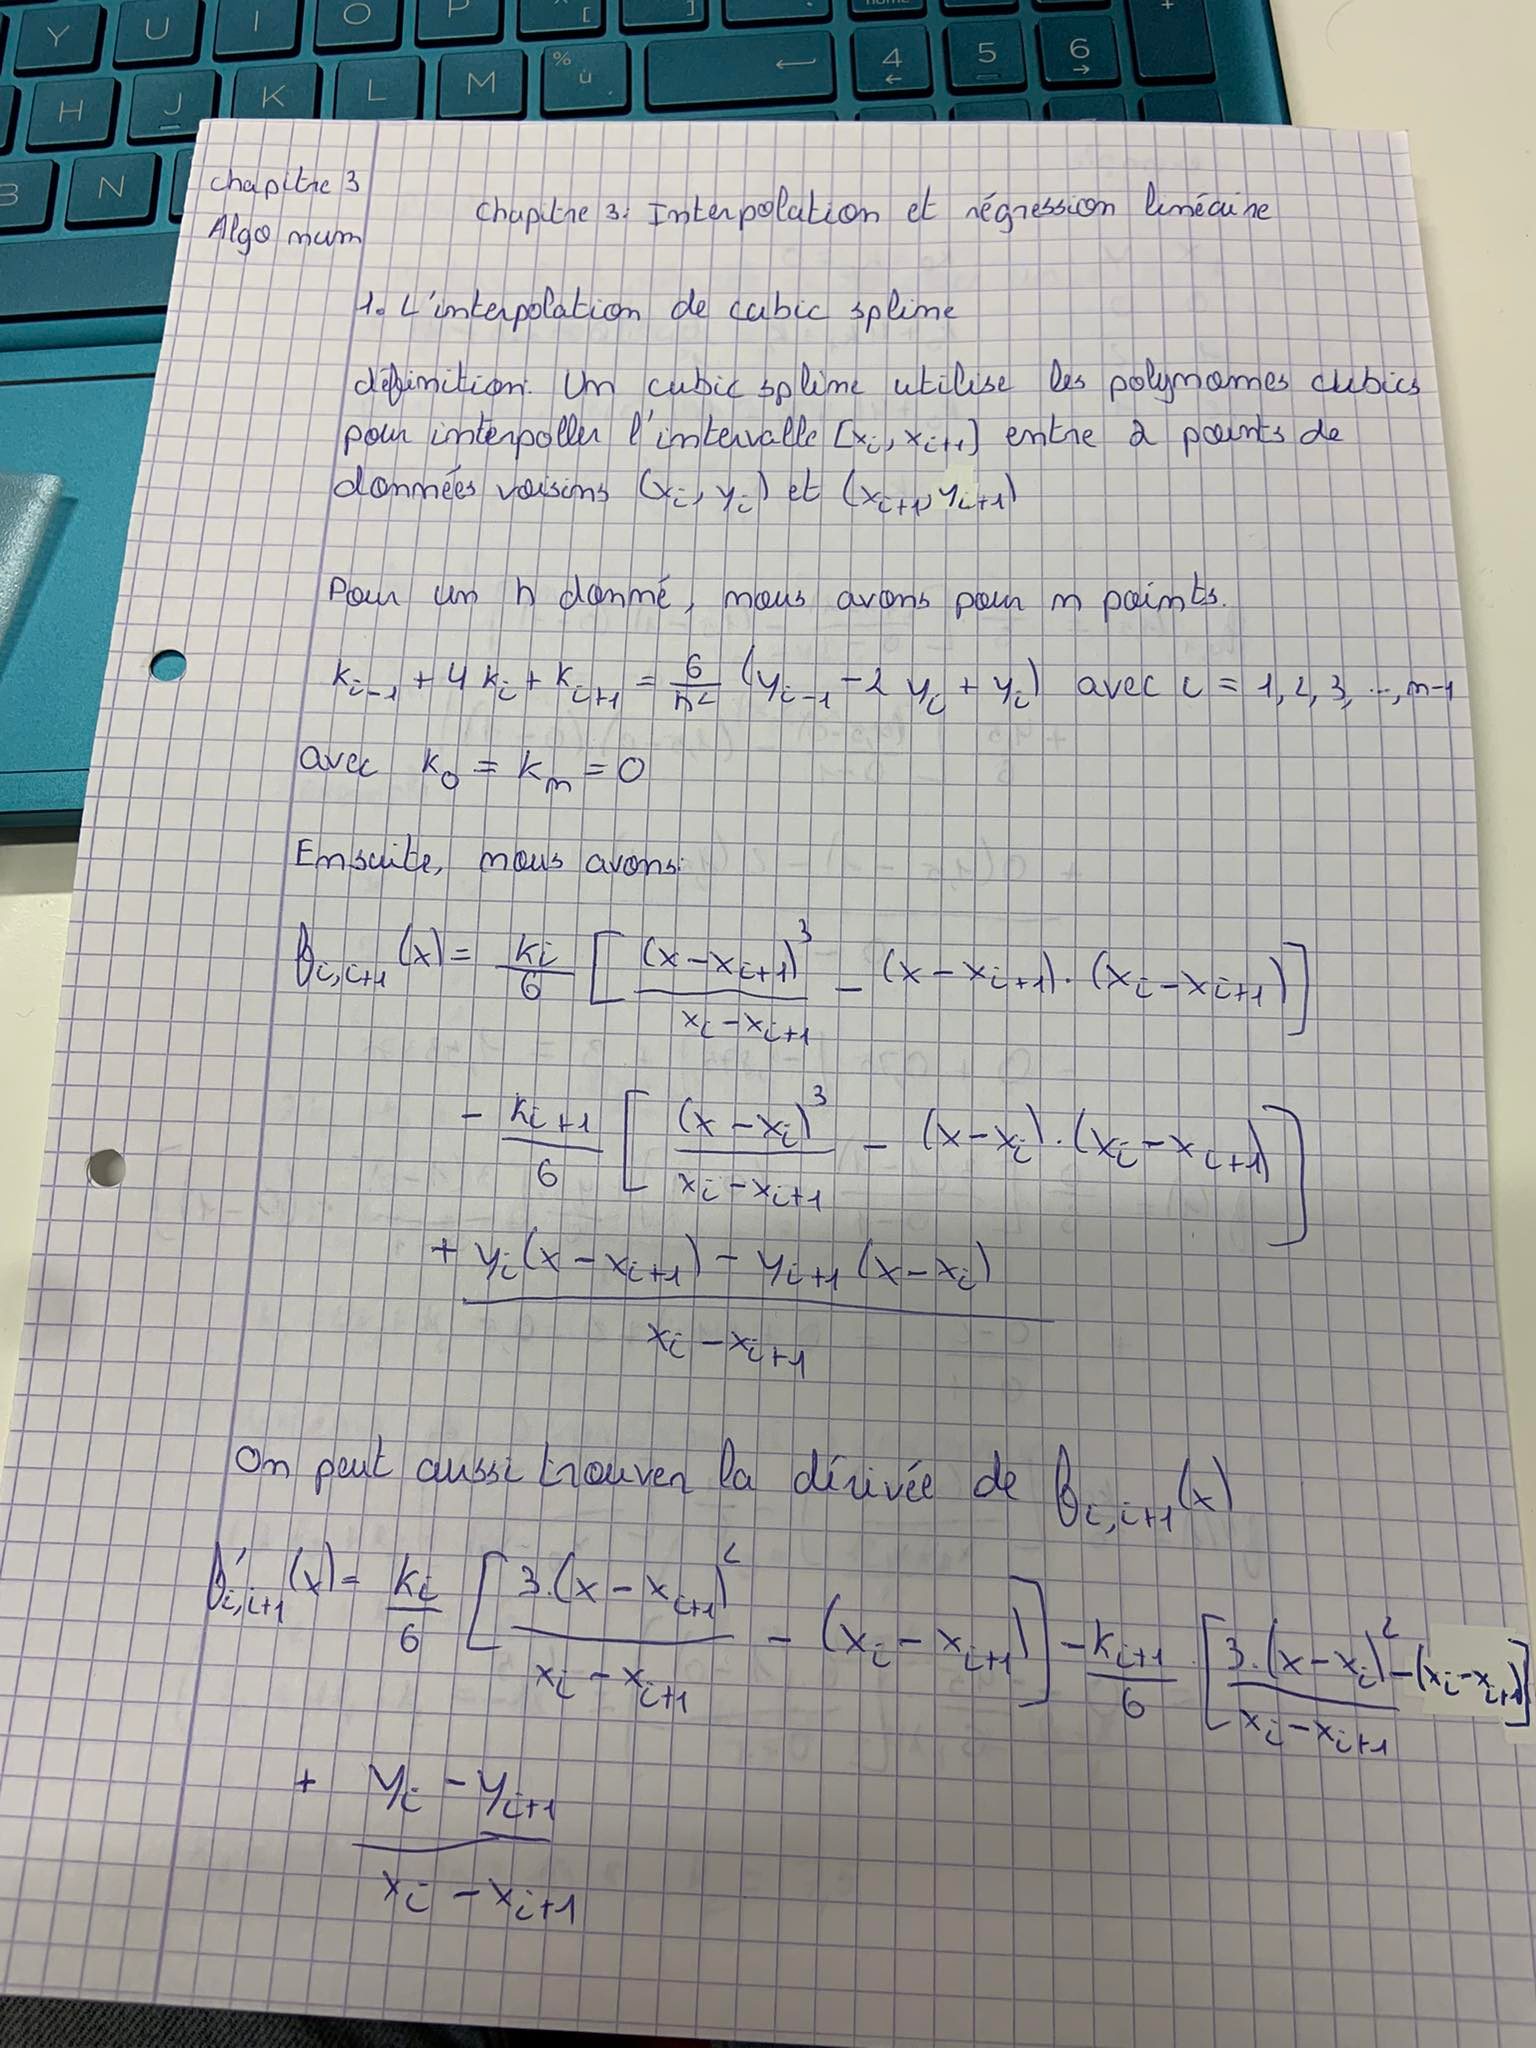 Y U I O P [ ]
H J K L M % ù ← 4 ← 5 6 → +
B N
chapitre 3
Algo num
Chapitre 3: Interpolation et régression linéaire
1. L'interpolation de cubic spline
définition: Un cubic spline utilise les polynomes cubics
pour interpoller l'intervalle [x_i, x_{i+1}] entre 2 points de
données voisins (x_i, y_i) et (x_{i+1}, y_{i+1})
Pour un h donné, nous avons pour n points.
k_{i-1} + 4 k_i + k_{i+1} = 6/h² (y_{i-1} - 2 y_i + y_i) avec i = 1, 2, 3, ..., n-1
avec k_0 = k_n = 0
Ensuite, nous avons:
f_{i,i+1}(x) = k_i/6 [ (x - x_{i+1})³/(x_i - x_{i+1}) - (x - x_{i+1}) · (x_i - x_{i+1}) ]
- k_{i+1}/6 [ (x - x_i)³/(x_i - x_{i+1}) - (x - x_i) · (x_i - x_{i+1}) ]
+ (y_i (x - x_{i+1}) - y_{i+1} (x - x_i))/(x_i - x_{i+1})
On peut aussi trouver la dérivée de f_{i,i+1}(x)
f'_{i,i+1}(x) = k_i/6 [ 3·(x - x_{i+1})²/(x_i - x_{i+1}) - (x_i - x_{i+1}) ] - k_{i+1}/6 · [ 3·(x - x_i)²/(x_i - x_{i+1}) - (x_i - x_{i+1}) ]
+ (y_i - y_{i+1})/(x_i - x_{i+1})